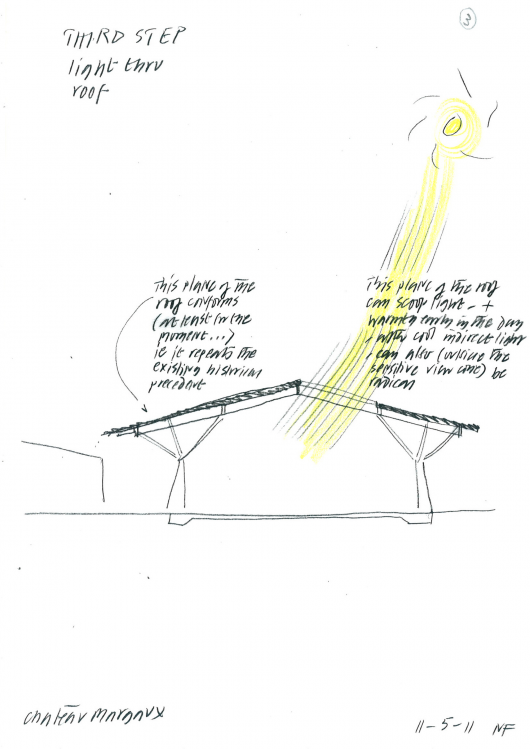 3
THIRD STEP
light thru
roof
This plane of the
roof conforms
(at least for the
moment...)
ie it repeats the
existing historical
precedent
This plane of the roof
can scoop light - +
warmth early in the day
- later cool indirect light
- can also (outside the
sensitive view cone) be
radical
chateau margaux
11-5-11 NF